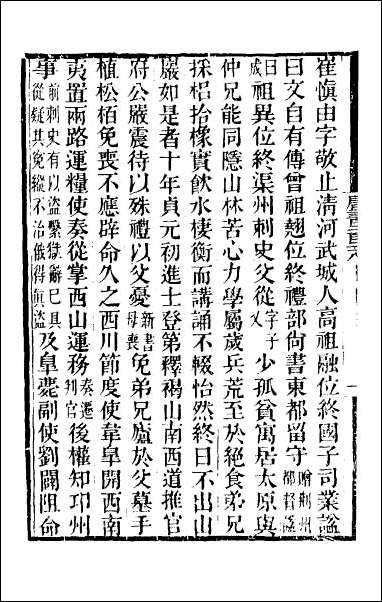 崔愼由字敬止淸河武城人高祖融位終國子司業諡
曰文自有傳曾祖翹位終禮部尙書東都留守贈荆州都督諡
成曰祖異位終渠州刺史父從字子乂少孤貧寓居太原與
仲兄能同隱山林苦心力學屬歲兵荒至於絕食弟兄
採梠拾橡實飮水棲衡而講誦不輟怡然終日不出山
巖如是者十年貞元初進士登第釋褐山南西道推官
府公嚴震待以殊禮以父憂新書母喪免弟兄廬於父墓手
植松柏免喪不應辟命久之西川節度使韋臯開西南
夷置兩路運糧使奏從掌西山運務奏遷判官後權知邛州
事前刺史有以盜繫獄辭已具從疑其寃縱不治俄得眞盜及臯薨副使劉闢阻命